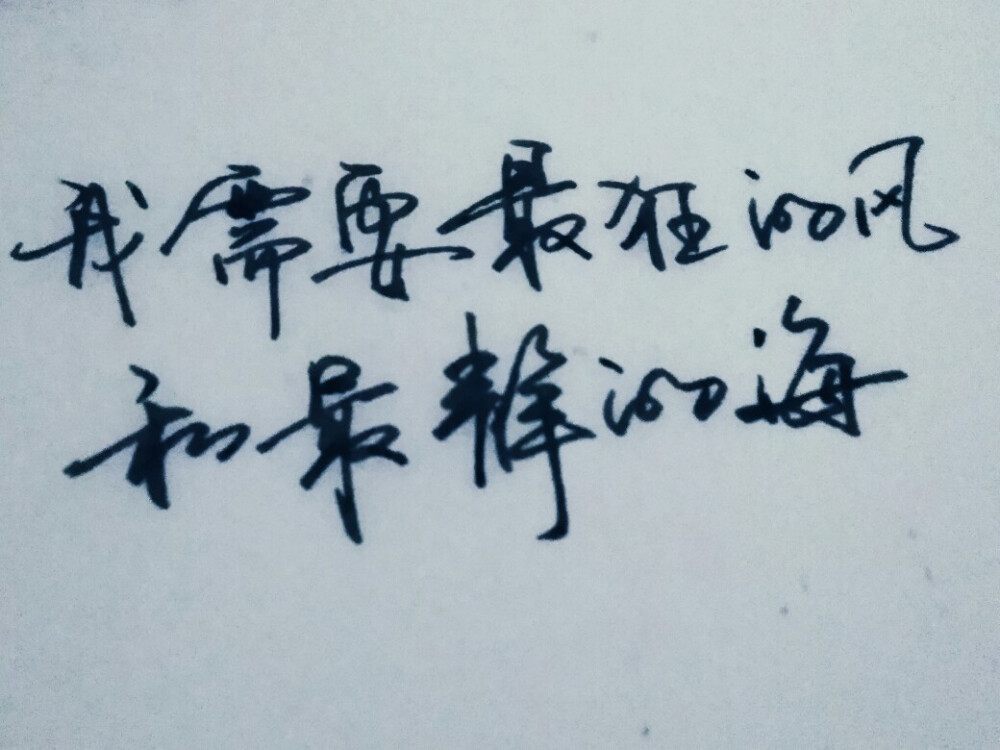 我需要最狂的风
和最静的海